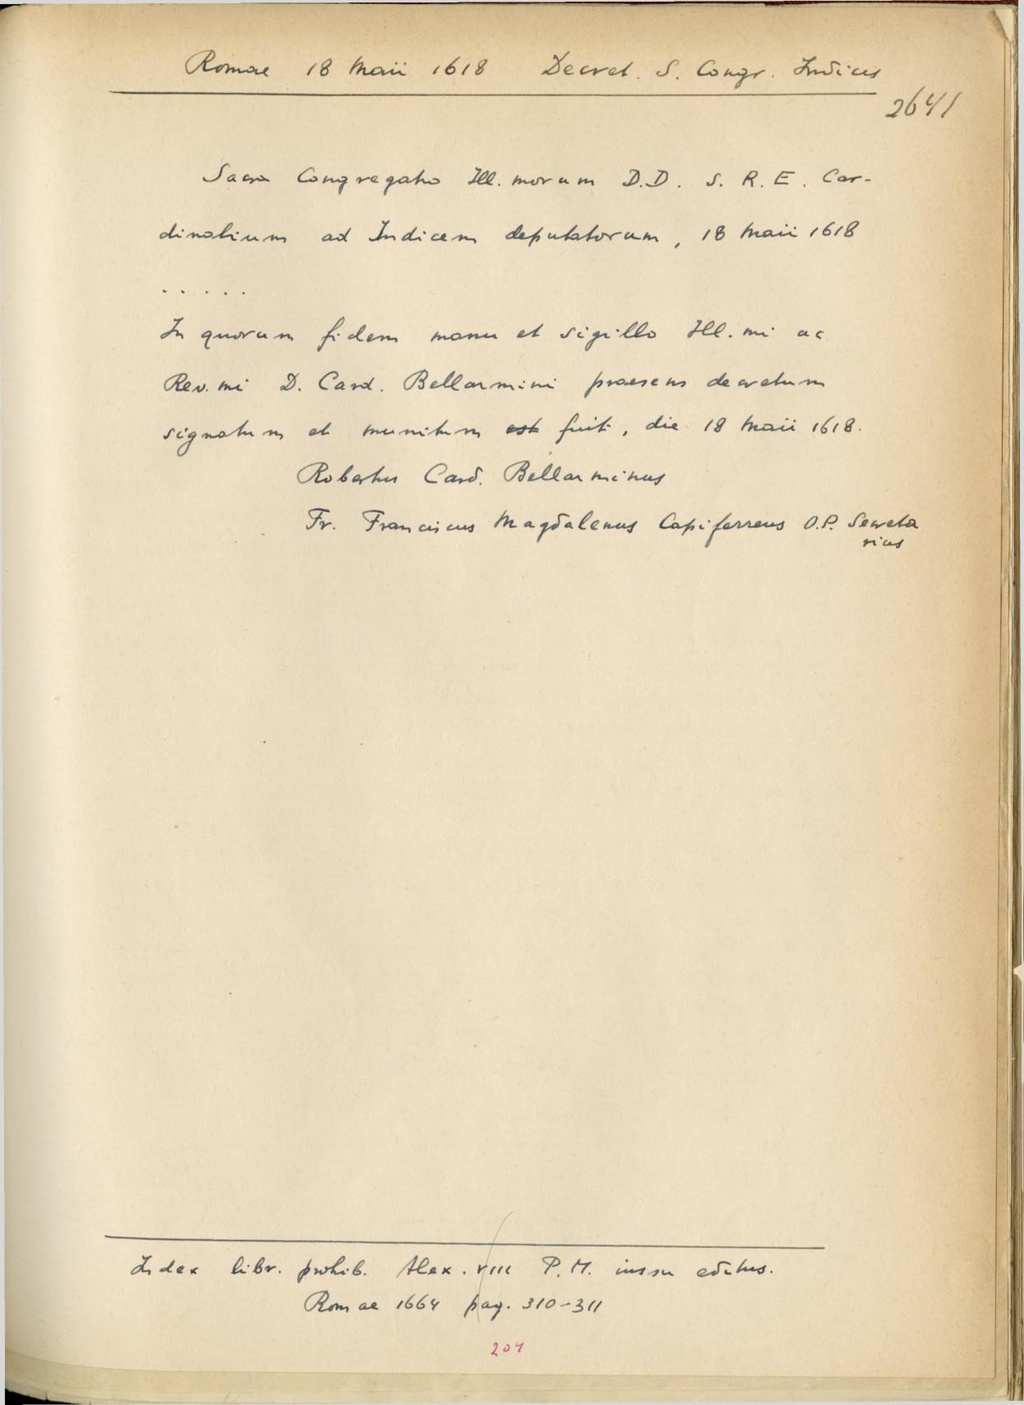 Romae 18 Maii 1618 Decret. S. Congr. Indicis
2641
Sacra Congregatio Ill.morum D.D. S. R. E. Car-
dinalium ad Indicem deputatorum, 18 Maii 1618
.....
In quorum fidem manu et sigillo Ill.mi ac
Rev.mi D. Card. Bellarmini praesens decretum
signatum et munitum est fuit, die 18 Maii 1618.
Robertus Card. Bellarminus
Fr. Franciscus Magdalenus Capiferreus O.P. Secreta
rius
Index libr. prohib. Alex. VIII P.M. iussu editus.
Romae 1664 pag. 310-311